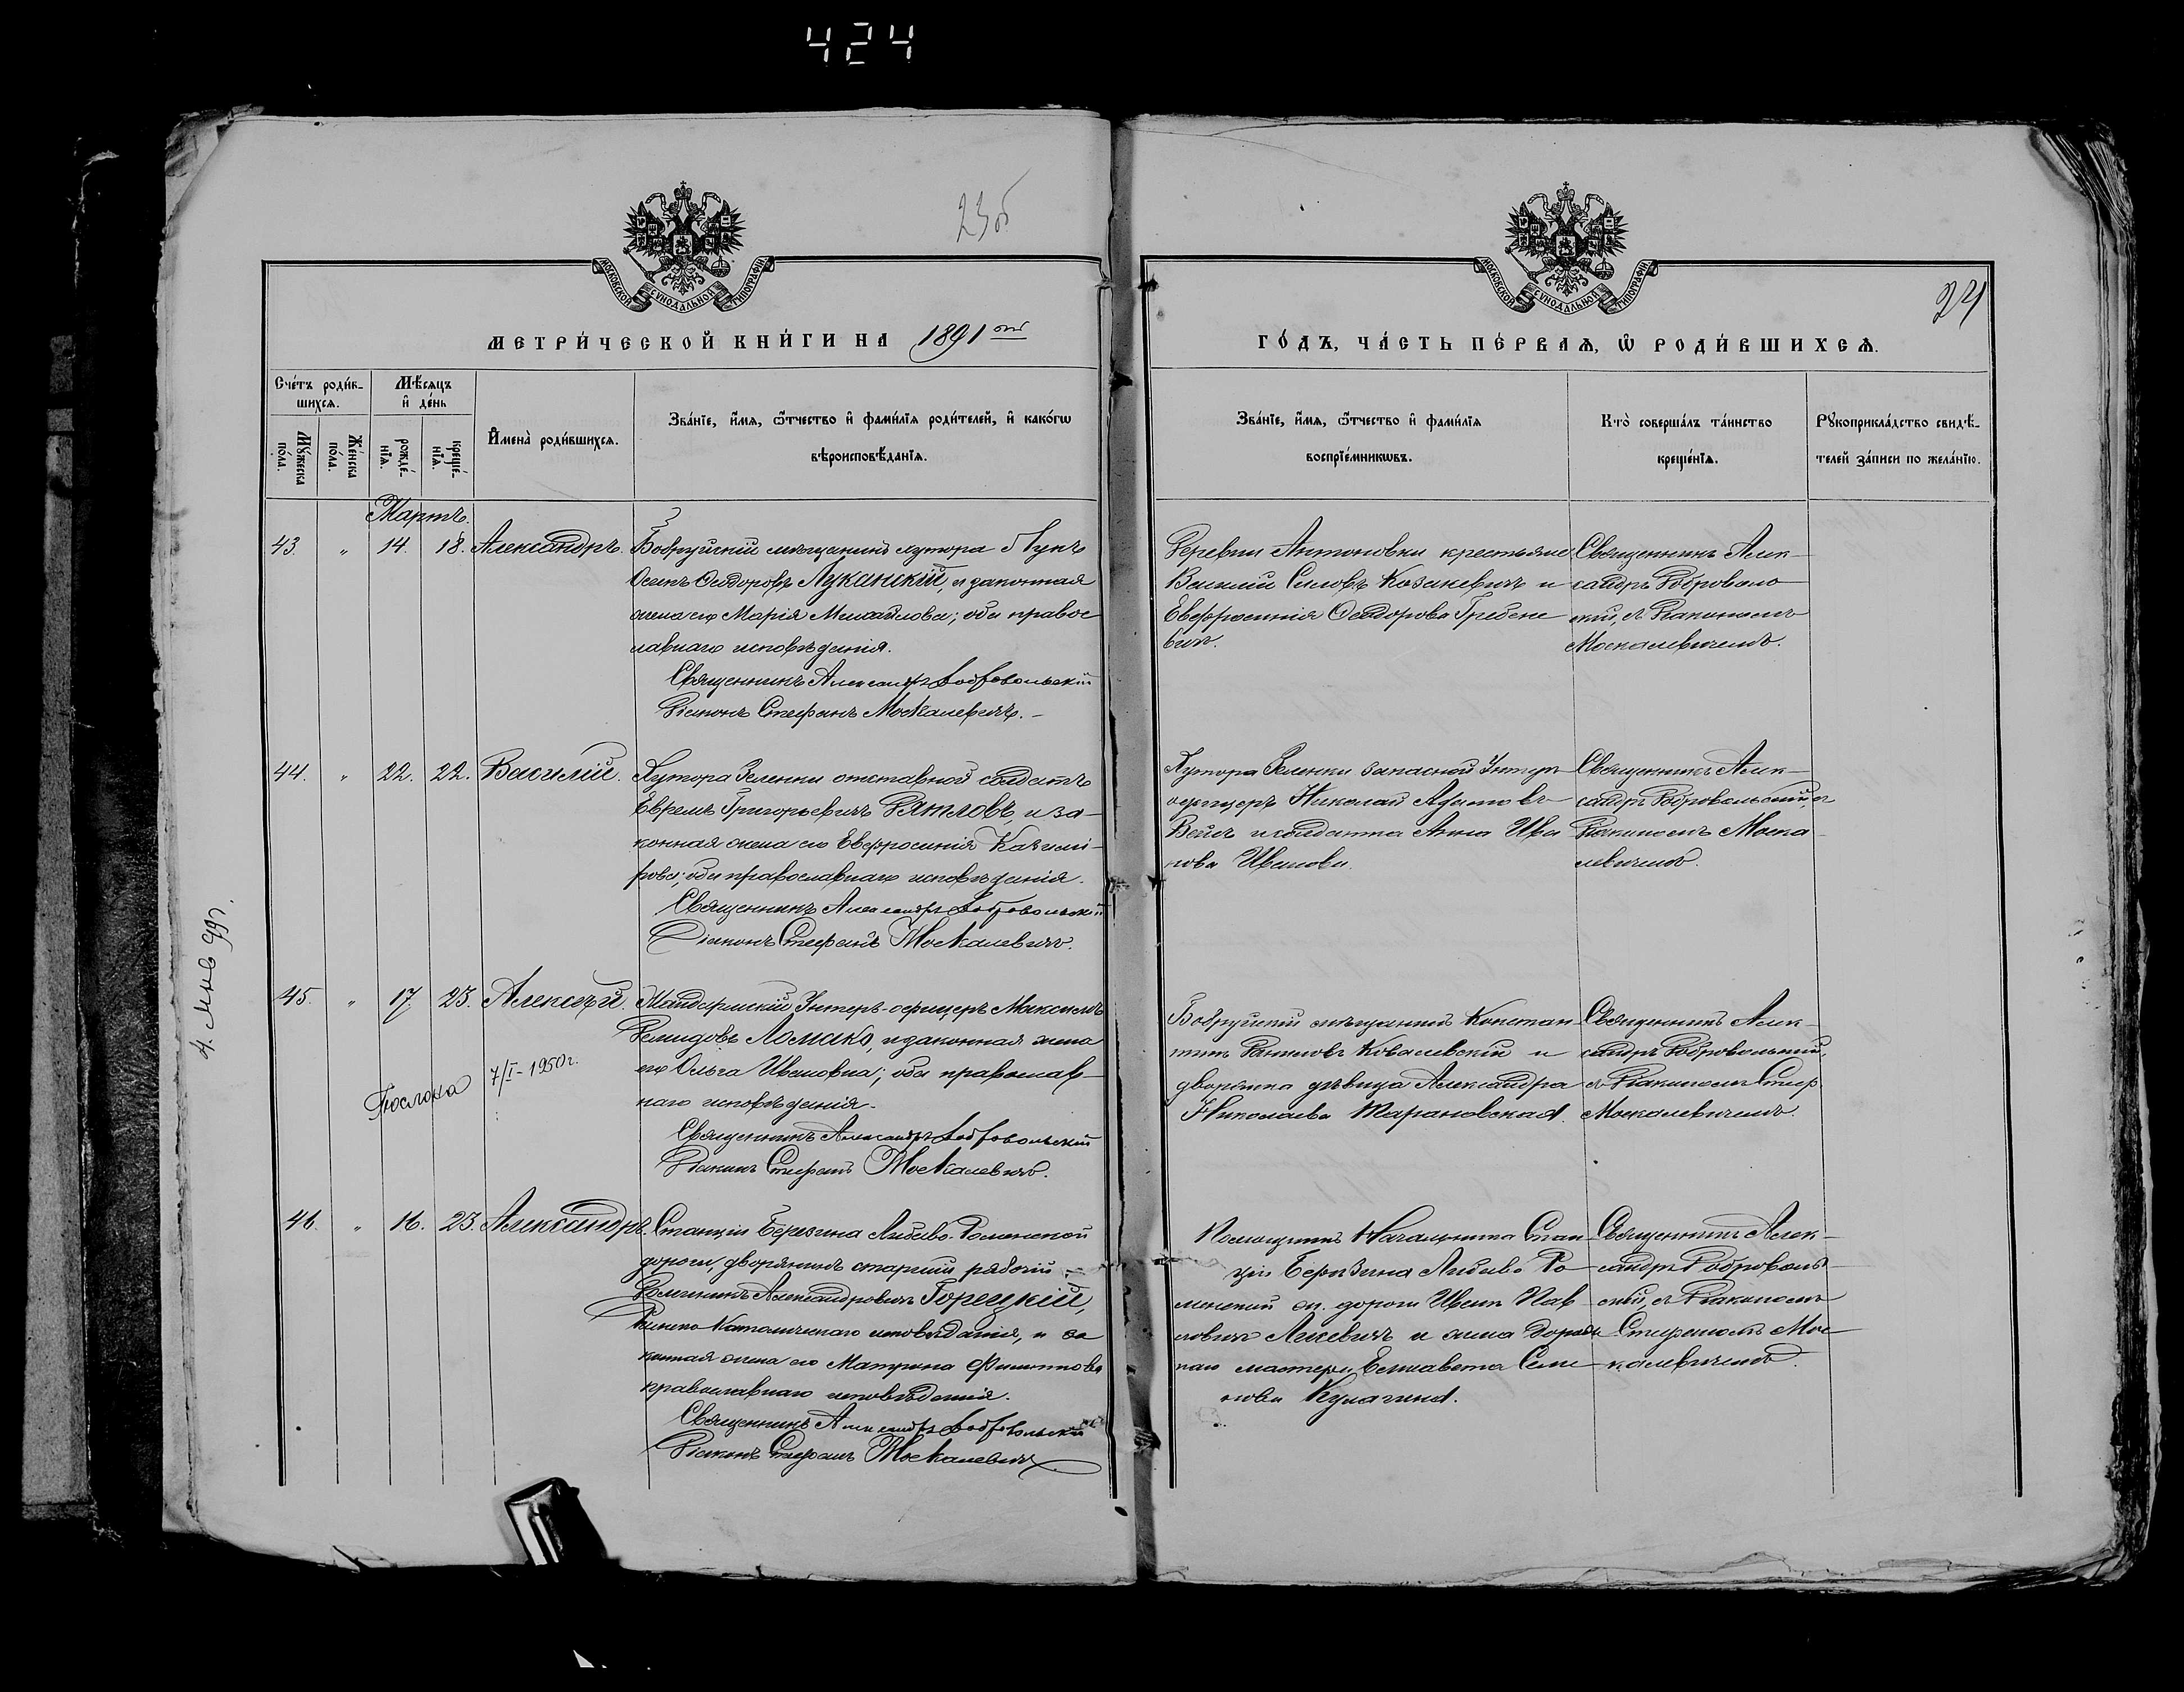 424
23 об
24
МОСКОВСКОЙ СѴНОДАЛЬНОЙ ТИПОГРАФІИ
МОСКОВСКОЙ СѴНОДАЛЬНОЙ ТИПОГРАФІИ
МЕТРИ́ЧЕСКОЙ КНИ́ГИ НА 1891 ый
ГО́ДЪ, ЧА́СТЬ ПЕ́РВАѦ, Ѡ РОДИ́ВШИХСѦ.
Сче́тъ роди́в-
шихсѧ.
Мѹ́жеска по́ла.
Же́нска по́ла.
Мѣ́сѧцъ и де́нь
рожде́-нїѧ.
креще́-нїѧ.
Имена̀ роди́вшихсѧ.
Зва́нїе, и́мѧ, ѻ́тчество и фами́лїѧ роди́телей, и како́гѡ
вѣроисповѣ́данїѧ.
Зва́нїе, и́мѧ, ѻ́тчество и фами́лїѧ
воспрїе́мникѡвъ.
Кто̀ соверша́лъ та́инство
креще́нїѧ.
Рꙋкоприкла́дство свидѣ́-
телей за́писи по жела́нїю.
Мартъ.
43. " 14. 18. Александръ.
Бобруйскій мѣщанинъ хутора
Ѳеодоровъ Луканскій, и законная
жена его Марія Михайлова; оба правос
лавнаго исповѣданія.
Священникъ Александръ Добровольскій
Діаконъ Стефанъ Москалевичъ.
Деревни Антоновки крестьяне
Василій Силовъ Козакевичъ и
Евфросинія Ѳеодорова Гребене
вичъ.
Священникъ Алек-
сандръ Доброволь
скій, съ Діакономъ
Москалевичемъ.
44. " 22. 22. Василій.
Хутора Зеленки отставной солдатъ
Ефремъ Григорьевичъ Дятловъ, и за-
конная жена его Евфросинія Казимі-
рова; оба православнаго исповѣданія.
Священникъ Александръ Добровольскій
Діаконъ Стефанъ Москалевичъ.
Хутора Зеленки запасной Унтеръ-
офицеръ Николай Адамовъ
и солдатка Анна Ива
нова Иванова.
Священникъ Алек-
сандръ Добровольскій, съ
Діакономъ Моска-
левичемъ.
45. " 17. 23. Алексѣй.
Жандармскій Унтеръ-офицеръ Максимъ
Демидовъ Ломако, и законная жена
его Ольга Ивановна; оба православ-
наго исповѣданія.
Священникъ Александръ Добровольскій
Діаконъ Стефанъ Москалевичъ.
7/I-1950г.
Бобруйскій мѣщанинъ Констан-
тинъ Даниловъ Ковалевскій и
дворянка дѣвица Александра
Николаева Тарановская.
Священникъ Алек-
сандръ Добровольскій,
съ Діакономъ Стеф.
Москалевичемъ.
46. " 16. 23. Александръ.
Станціи Березина Либаво-Роменской
дороги, дворянинъ старшій рабочій
Александровичъ Горецкій,
Римско-Католическаго исповѣданія, и за
конная жена его Матрона Филиппова
православнаго исповѣданія.
Священникъ Александръ Добровольскій
Діаконъ Стефанъ Москалевичъ
Помощникъ Начальника Стан
ціи Березина Либаво-Ро
менской ж. дороги Иванъ Пав
ловичъ и жена дорож
наго мастера Елисавета Семе
нова Кулагина.
Священникъ Алек-
сандръ Доброволь-
скій, съ Діакономъ
Стефаномъ Мос-
калевичемъ.